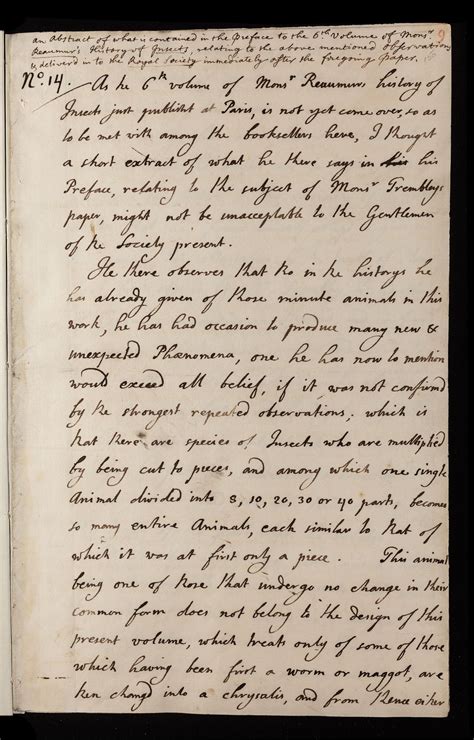 an Abstract of what is contained in the Preface to the 6th Volume of Monsr
Reaumur's History of Insects, relating to the above mentioned Observations
& deliverd in to the Royal Society immediately after the foregoing paper.
9
No. 14. As ye 6th volume of Monsr Reaumurs history of
Insects just publisht at Paris, is not yet come over, so as
to be met with among the booksellers here, I thought
a short extract of what he there says in his
Preface, relating to the subject of Monsr Trembleys
paper, might not be unacceptable to the Gentlemen
of ye Society present.
He there observes that tho in ye historys he
has already given of those minute animals in this
work, he has had occasion to produce many new &
unexpected Phænomena, one he has now to mention
would exceed all belief, if it was not confirmed
by ye strongest repeated observations; which is
that there are species of Insects who are multiplied
by being cut to pieces, and among which one single
Animal divided into 8, 10, 20, 30 or 40 parts, becomes
so many entire Animals, each similar to that of
which it was at first only a piece. This animal
being one of those that undergo no change in their
common form does not belong to the design of this
present volume, which treats only of some of those
which having been first a worm or maggot, are
then changd into a chrysalis, and from thence either